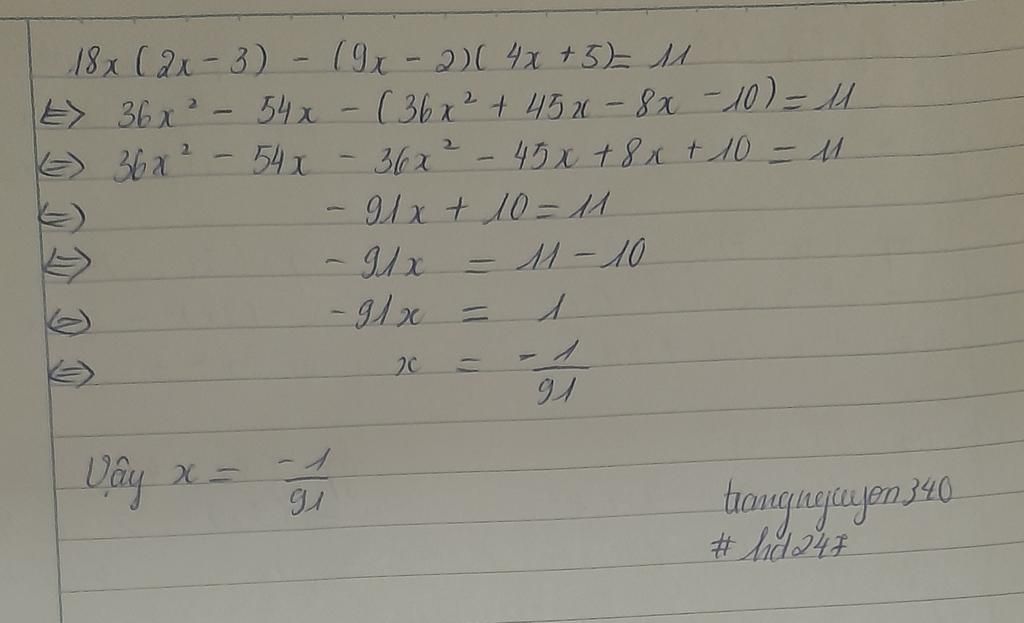 18x (2x - 3) - (9x - 2)( 4x + 5) = 11
<=> 36x² - 54x - (36x² + 45x - 8x - 10) = 11
<=> 36x² - 54x - 36x² - 45x + 8x + 10 = 11
<=> - 91x + 10 = 11
<=> - 91x = 11 - 10
<=> - 91x = 1
<=> x = -1/91
Vậy x = -1/91
trangnguyen340
# hd247